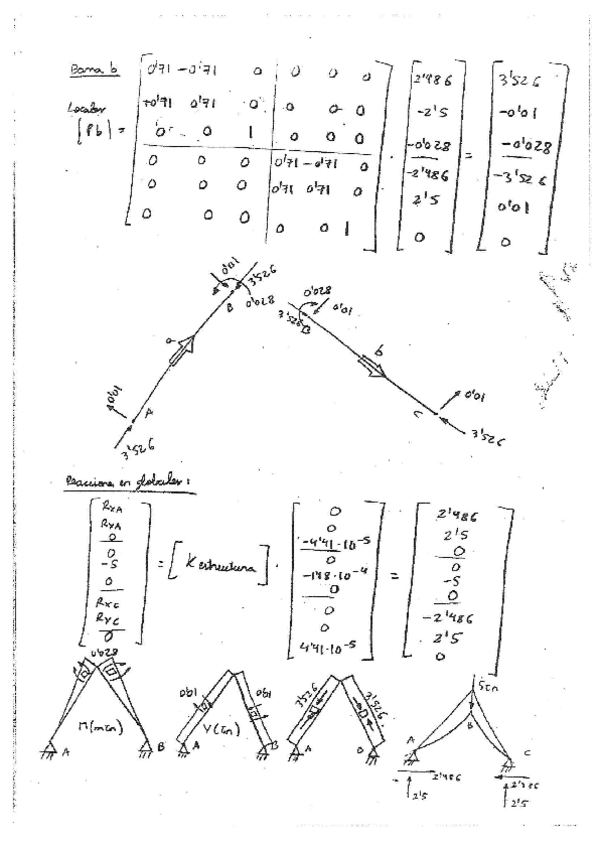 Barra b
Locales
[Pb] =
0'71 -0'71 0 0 0 0
+0'71 0'71 0 0 0 0
0 0 1 0 0 0
0 0 0 0'71 -0'71 0
0 0 0 0'71 0'71 0
0 0 0 0 0 1
·
2'486
-2'5
-0'028
-2'486
2'5
0
=
3'526
-0'01
-0'028
-3'526
0'01
0
0'01
3'526
B
0'028
a
0'01
A
3'526
0'028
0'01
3'526
B
b
C
0'01
3'526
Reacciones en globales:
RxA
RxA
0
0
-5
0
RxC
RyC
0
= [K estructura] ·
0
0
-4'41·10-5
0
-1'48·10-4
0
0
0
4'41·10-5
=
2'486
2'5
0
0
-5
0
-2'486
2'5
0
0'028
M(mTn)
A
B
0'01
0'01
V(Tn)
A
B
3'526
3'526
A
5Tn
B
A
C
2'486
2'5
2'486
2'5